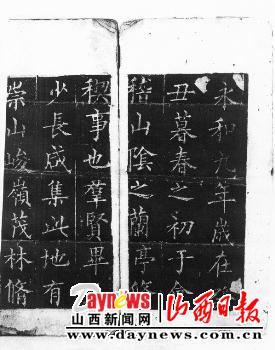 永和九年歲在
丑暮春之初于會
稽山陰之蘭亭脩
稧事也羣賢畢
少長咸集此地有
崇山峻嶺茂林脩
Daynews
山西新闻网
山西日报
www.daynews.com.cn